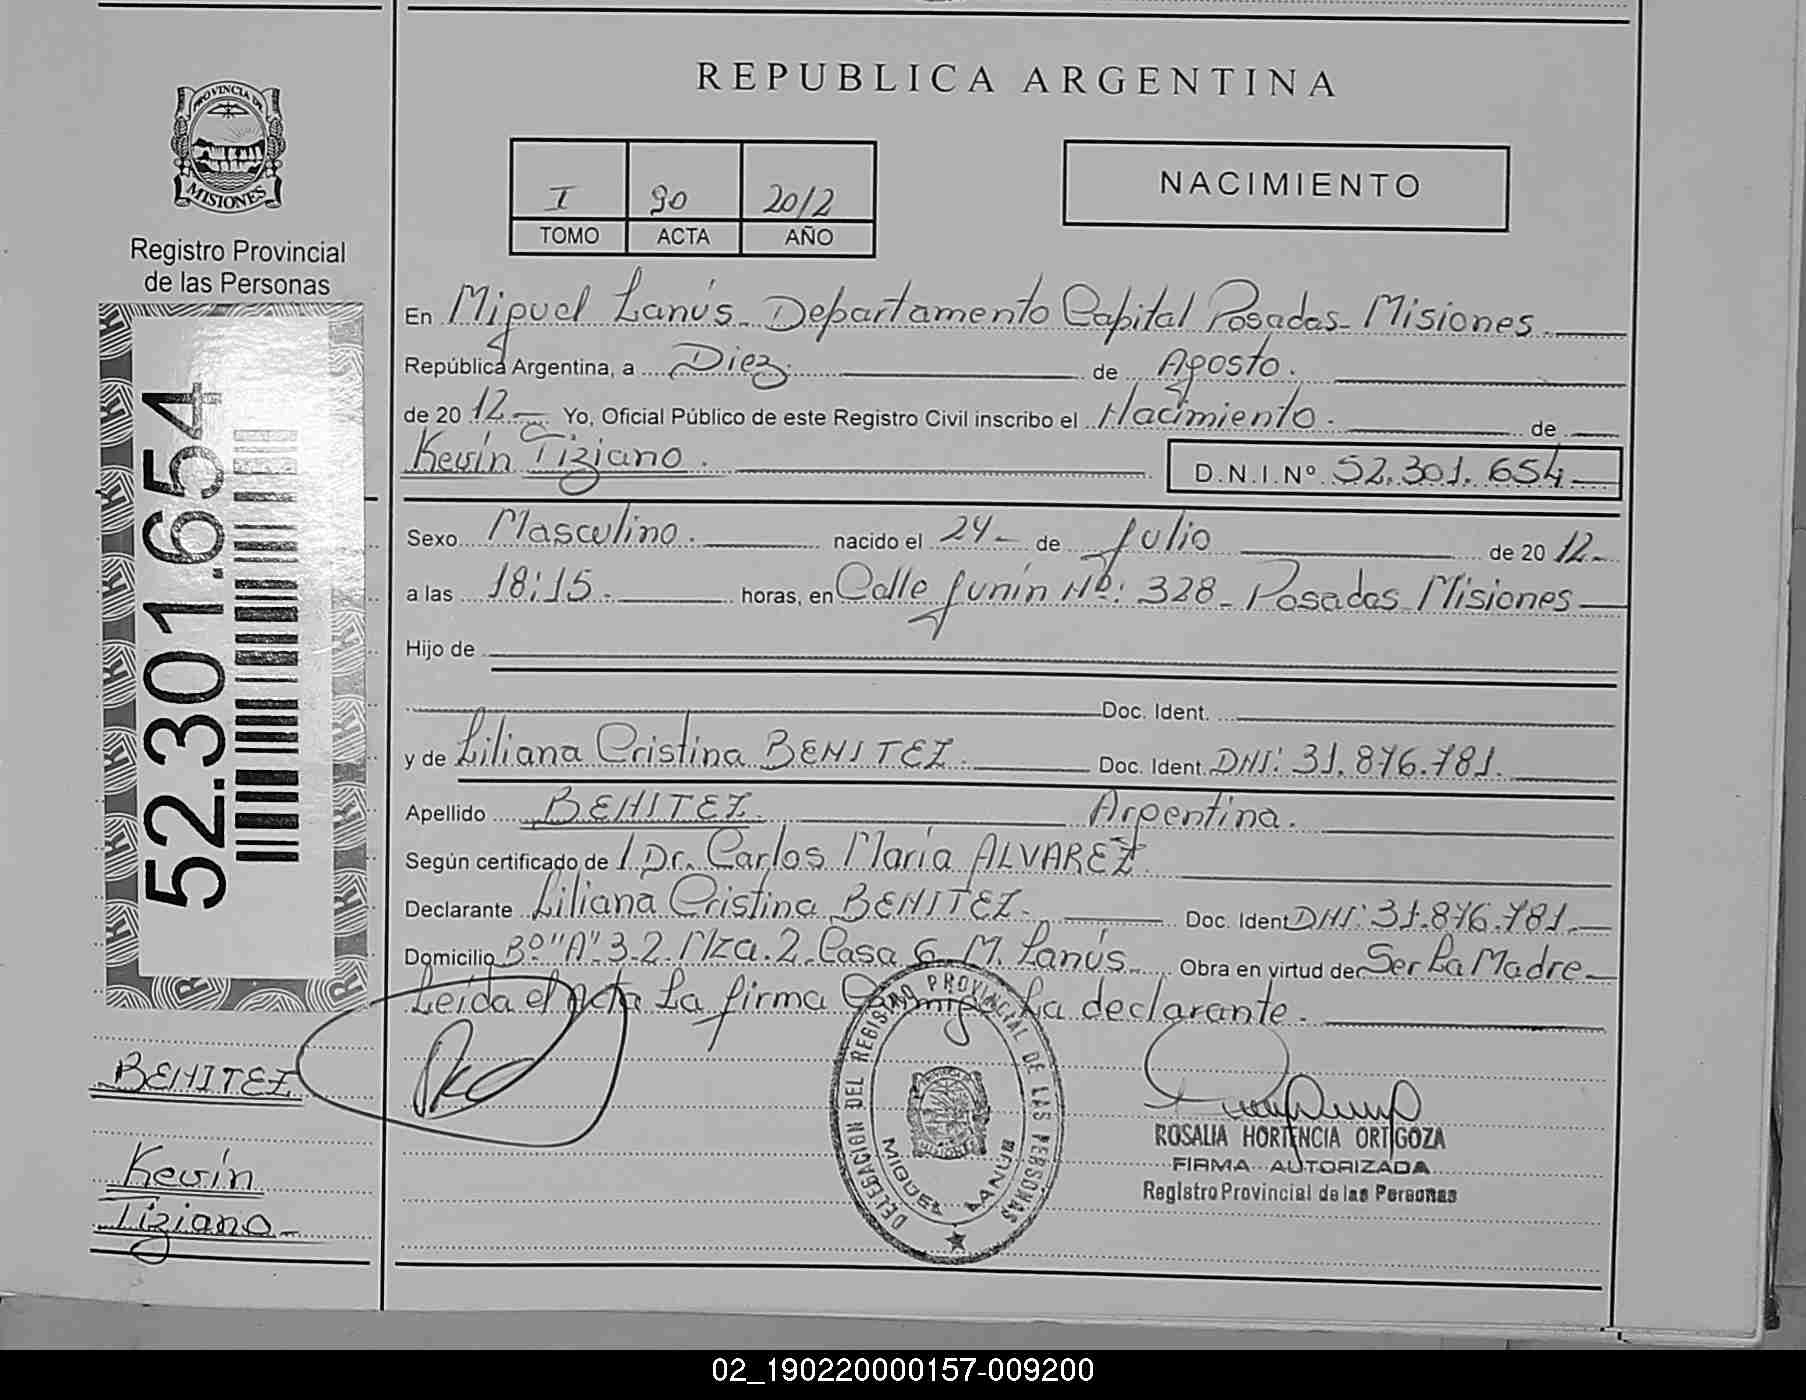 REPUBLICA ARGENTINA
PROVINCIA DE
MISIONES
Registro Provincial
de las Personas
I 90 2012
TOMO ACTA AÑO
NACIMIENTO
52.301.654
En Miguel Lanús - Departamento Capital Posadas - Misiones.
República Argentina, a Diez. de Agosto.
de 20 12.- Yo, Oficial Público de este Registro Civil inscribo el Nacimiento. de
Kevin Tiziano. D.N.I.Nº 52.301.654
Sexo Masculino. nacido el 24- de Julio de 20 12.-
a las 18:15. horas, en Calle Junín Nº: 328 - Posadas Misiones
Hijo de
Doc. Ident.
y de Liliana Cristina BENITEZ. Doc. Ident. DNI: 31.876.781.
Apellido BENITEZ. Argentina.
Según certificado de Dr. Carlos María ALVAREZ.
Declarante Liliana Cristina BENITEZ. Doc. Ident DNI: 31.876.781.
Domicilio Bº "A" 3.2. Mza. 2. Casa 6 M. Lanús. Obra en virtud de Ser La Madre
Leída el Acta La firma Conmigo La declarante.
BENITEZ
Kevin
Tiziano.-
DELEGACION DEL REGISTRO PROVINCIAL DE LAS PERSONAS
MIGUEL LANUS
ROSALIA HORTENCIA ORTIGOZA
FIRMA AUTORIZADA
Registro Provincial de las Personas
02_190220000157-009200